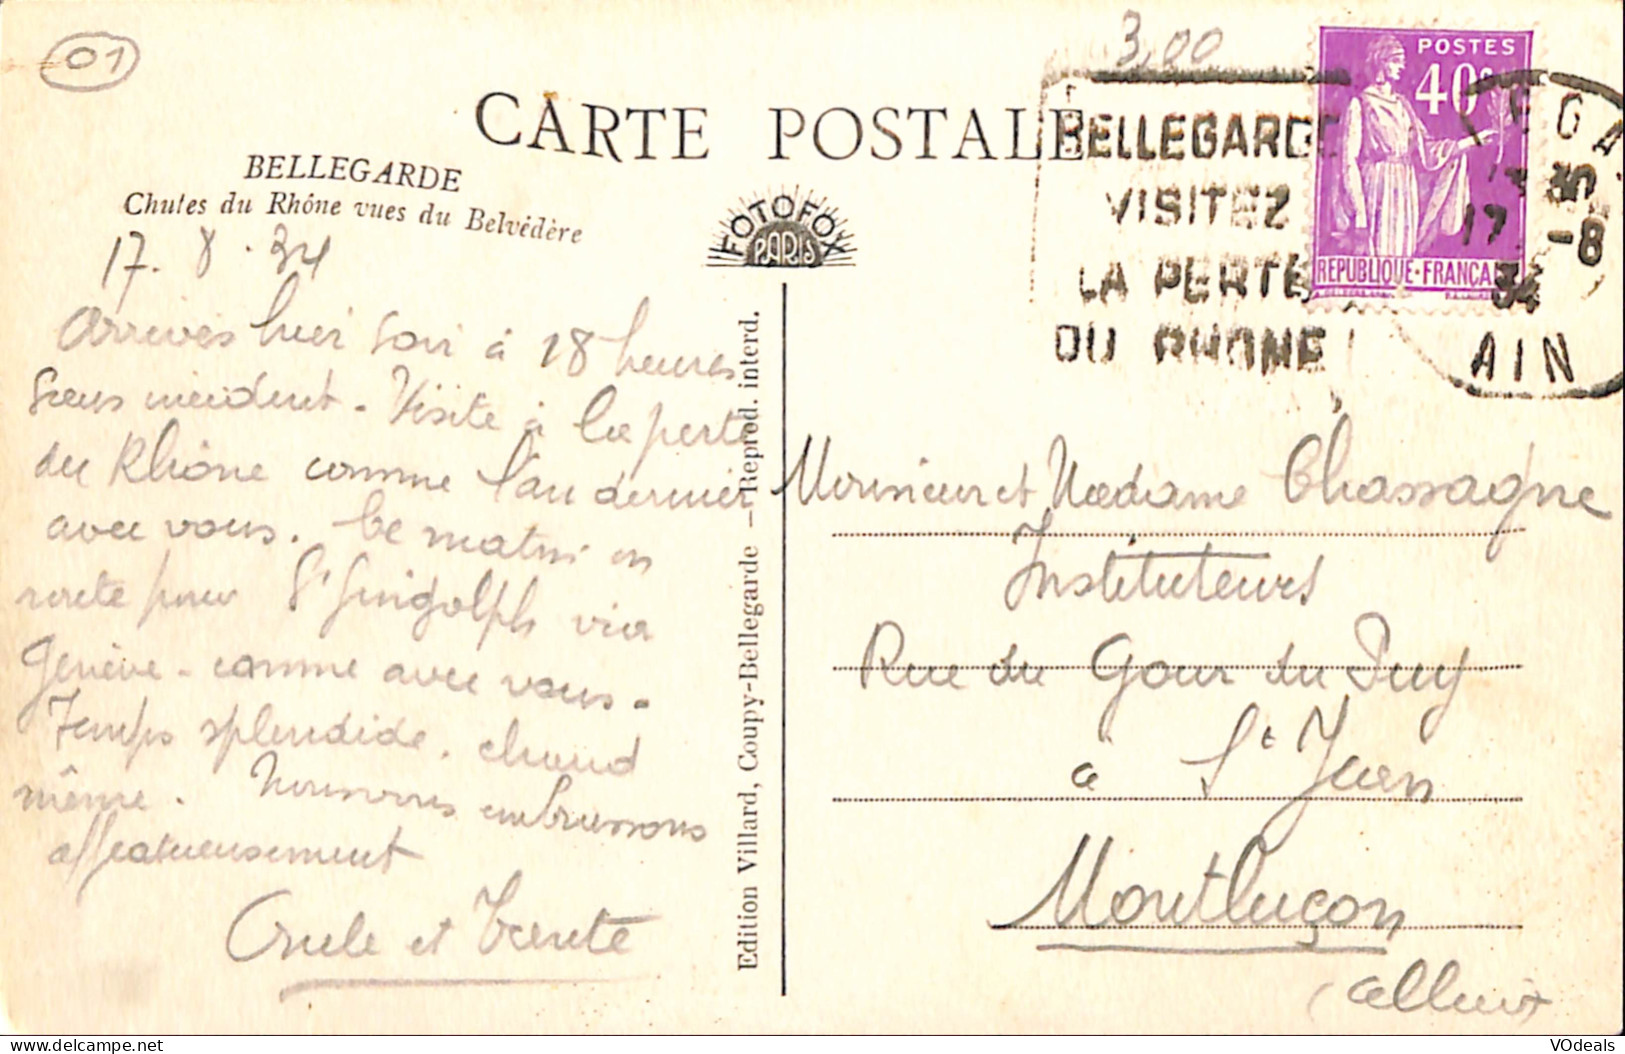 01
3,00
CARTE POSTALE
BELLEGARDE
Chutes du Rhône vues du Belvédère
FOTOFOX
PARIS
BELLEGARDE
VISITEZ
LA PERTE
DU RHONE
POSTES
40c
REPUBLIQUE-FRANÇA
EGA
17 -8
34
AIN
17.8.34
Arrivés hier soir à 18 heures
sans incident. Visite à la perte
du Rhône comme l'an dernier
avec vous. Ce matin en
route pour St Gingolph via
Genève - comme avec vous.
Temps splendide. chaud
même. Nous vous embrassons
affectueusement
Oncle et Tante
Edition Villard, Coupy-Bellegarde - Reprod. interd.
Monsieur et Madame Chassagne
Instituteurs
Rue du Gour du Puy
à St Jean
Montluçon
(Allier)
delcampe.net
VOdeals